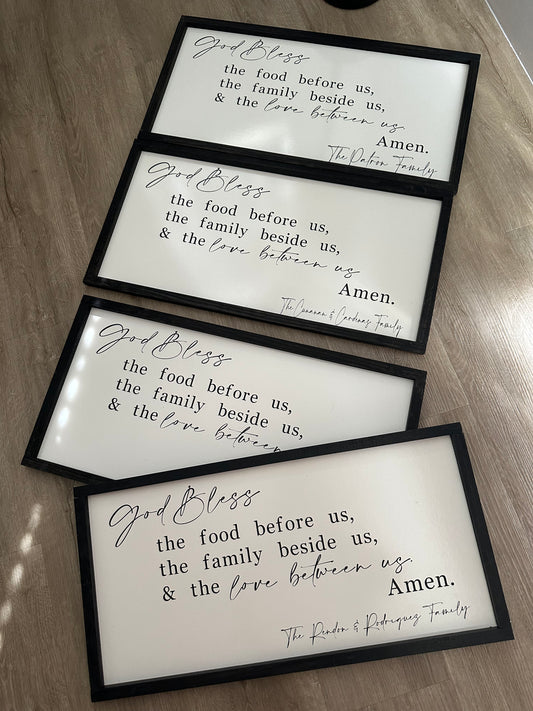 God Bless
the food before us,
the family beside us,
& the love between us.
Amen.
The Patron Family
God Bless
the food before us,
the family beside us,
& the love between us
Amen.
The Cunanan & Cardenas Family
God Bless
the food before us,
the family beside us,
& the love between
God Bless
the food before us,
the family beside us,
& the love between us.
Amen.
The Rendon & Rodriquez Family